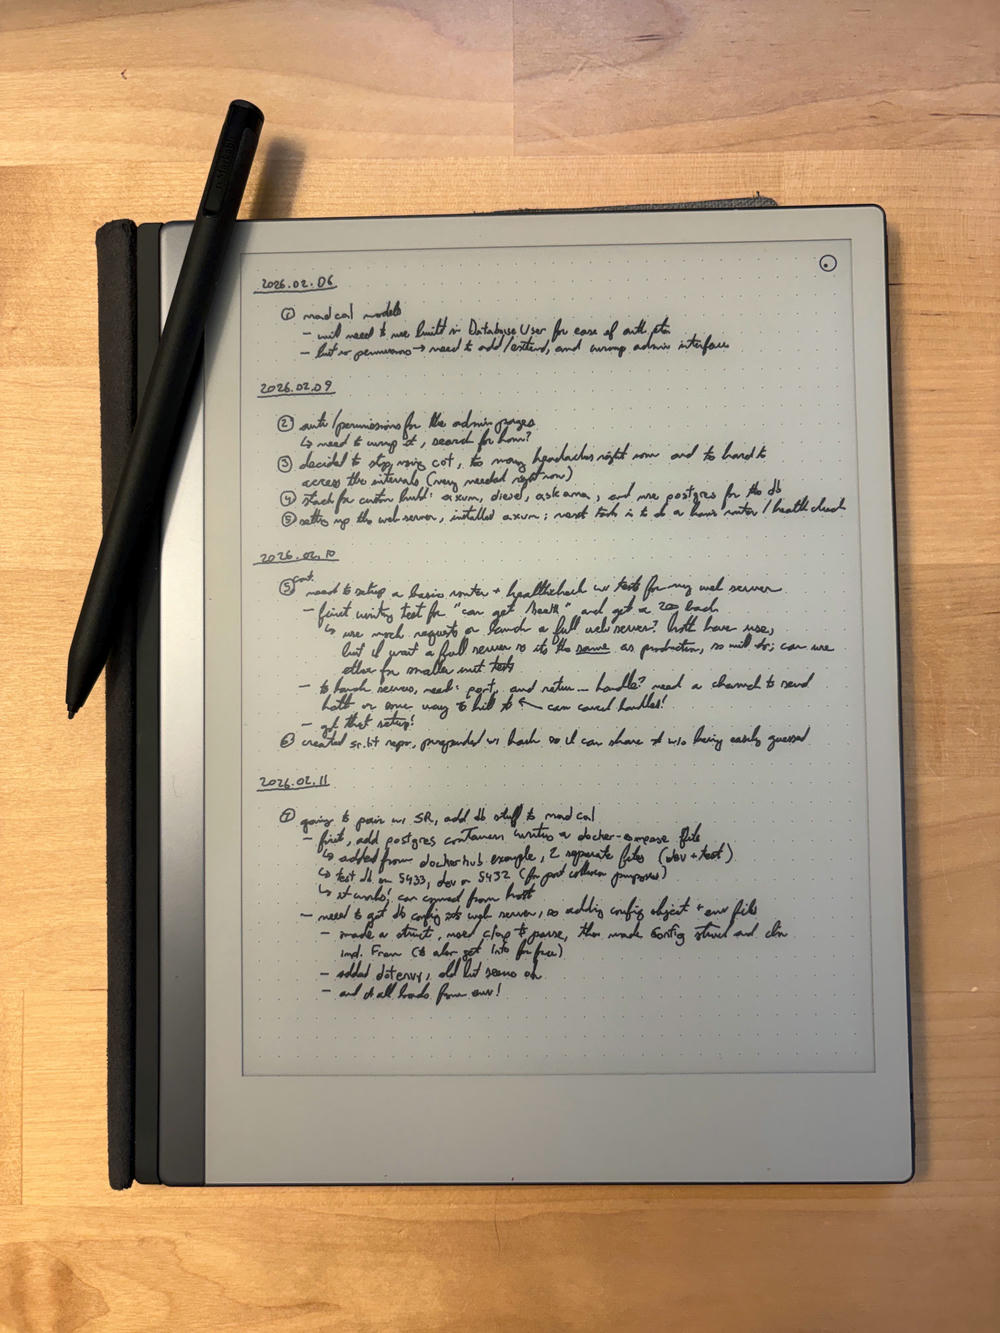 reMarkable
2026.02.06
① mad cal models
– will need to use built in Database User for ease of auth ptn
– but no permissions → need to add/extend, and wrap admin interfaces
2026.02.09
② auth/permissions for the admin pages
↳ need to wrap it, search for how?
③ decided to stop using cot, too many headaches right now and too hard to
access the internals (very needed right now)
④ stack for custom build: axum, diesel, askama, and use postgres for the db
⑤ setting up the web server, installed axum; next task is to do a basic router/healthcheck
2026.02.10
⑤ cont. need to setup a basic router + healthcheck w/ tests for my web server
– first writing test for "can get /health" and get a 200 back
↳ use mock requests or launch a full web server? both have use,
but I want a full server so it's the same as production, so will do; can use
other for smaller unit tests
– to launch servers, need: port, and return ... handle? need a channel to send
both or some way to kill it ← can cancel handles!
– got that setup!
⑥ created sr.ht repo, prepended w/ hash so I can share it w/o being easily guessed
2026.02.11
⑦ going to pair w/ SR, add db stuff to mad cal
– first, add postgres containers writing a docker-compose file
↳ added from dockerhub example, 2 separate files (dev + test)
↳ test db on 5433, dev on 5432 (for port collision purposes)
↳ it works! can connect from host
– need to get db config into web server, so adding config object + env file
– made a struct, used clap to parse, then made Config struct and
impl. From (to also get Into for free)
– added dotenvy, old but seems ok
– and it all loads from env!